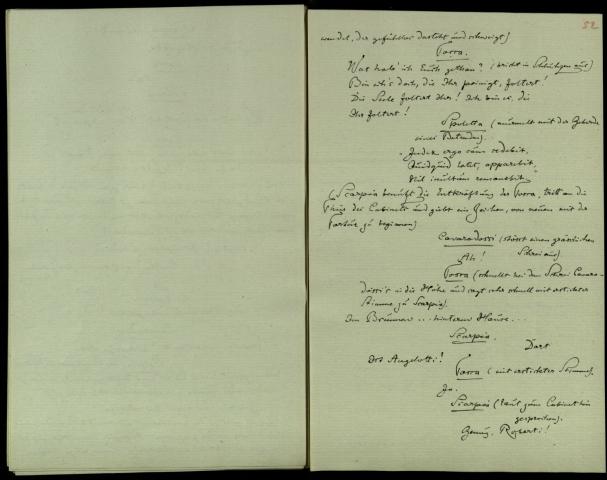 52
wendet, der gefühllos dasteht und schweigt)
Tosca.
Was hab' ich Euch gethan? (bricht in Schluchzen aus)
Bin ich's doch, die Ihr peinigt, foltert!
Die Seele foltert Ihr! Ich bin es, die
Ihr foltert!
Spoletta (murmelt mit der Geberde
eines Betenden).
„Judex ergo cum sedebit,
Quidquid latet, apparebit,
Nil inultum remanebit."
(Scarpia benutzt die Entkräftung der Tosca, tritt an die
Thür des Cabinets und giebt ein Zeichen, von neuem mit der
Tortur zu beginnen)
Cavaradossi (stösst einen grässlichen
Ah! Schrei aus)
Tosca (schnellt bei dem Schrei Cavara-
dossi's in die Höhe und sagt sehr schnell mit erstickter
Stimme zu Scarpia).
Im Brunnen ... hinterm Hause ...
Scarpia.
Dort
Ist Angelotti?
Tosca (mit erstickter Stimme).
Ja.
Scarpia (laut zum Cabinet hin
gesprochen).
Genug, Roberti!